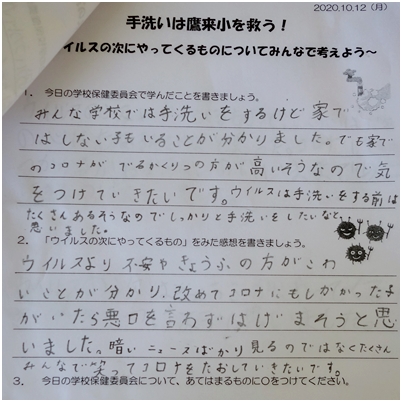 2020.10.12（月）
手洗いは鷹来小を救う！
イルスの次にやってくるものについてみんなで考えよう～
1． 今日の学校保健委員会で学んだことを書きましょう。
みんな学校では手洗いをするけど家で
はしない子もいることが分かりました。でも家で
のコロナがでるかくりつの方が高いそうなので気
をつけていきたいです。ウイルスは手洗いをする前は
たくさんあるそうなのでしっかりと手洗いをしたいなと、
思いました。
2．「ウイルスの次にやってくるもの」をみた感想を書きましょう。
ウイルスより不安やきょうふの方がこわ
いことが分かり、改めてコロナにもしかかった子
がいたら悪口を言わずはげまそうと思
いました。暗いニュースばかり見るのではなくたくさん
みんなで笑ってコロナをたおしていきたいです。
3． 今日の学校保健委員会について、あてはまるものに〇をつけてください。